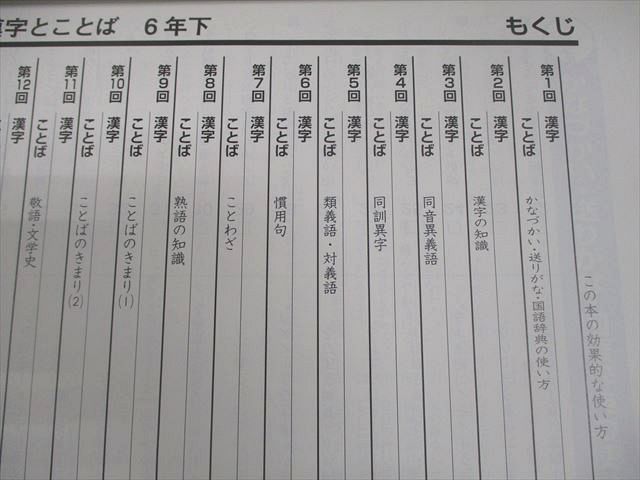 漢字とことば 6年下
もくじ
この本の効果的な使い方
第1回 漢字
ことば かなづかい・送りがな・国語辞典の使い方
第2回 漢字
ことば 漢字の知識
第3回 漢字
ことば 同音異義語
第4回 漢字
ことば 同訓異字
第5回 漢字
ことば 類義語・対義語
第6回 漢字
ことば 慣用句
第7回 漢字
ことば ことわざ
第8回 漢字
ことば 熟語の知識
第9回 漢字
ことば ことばのきまり(1)
第10回 漢字
ことば ことばのきまり(2)
第11回 漢字
ことば 敬語・文学史
第12回 漢字